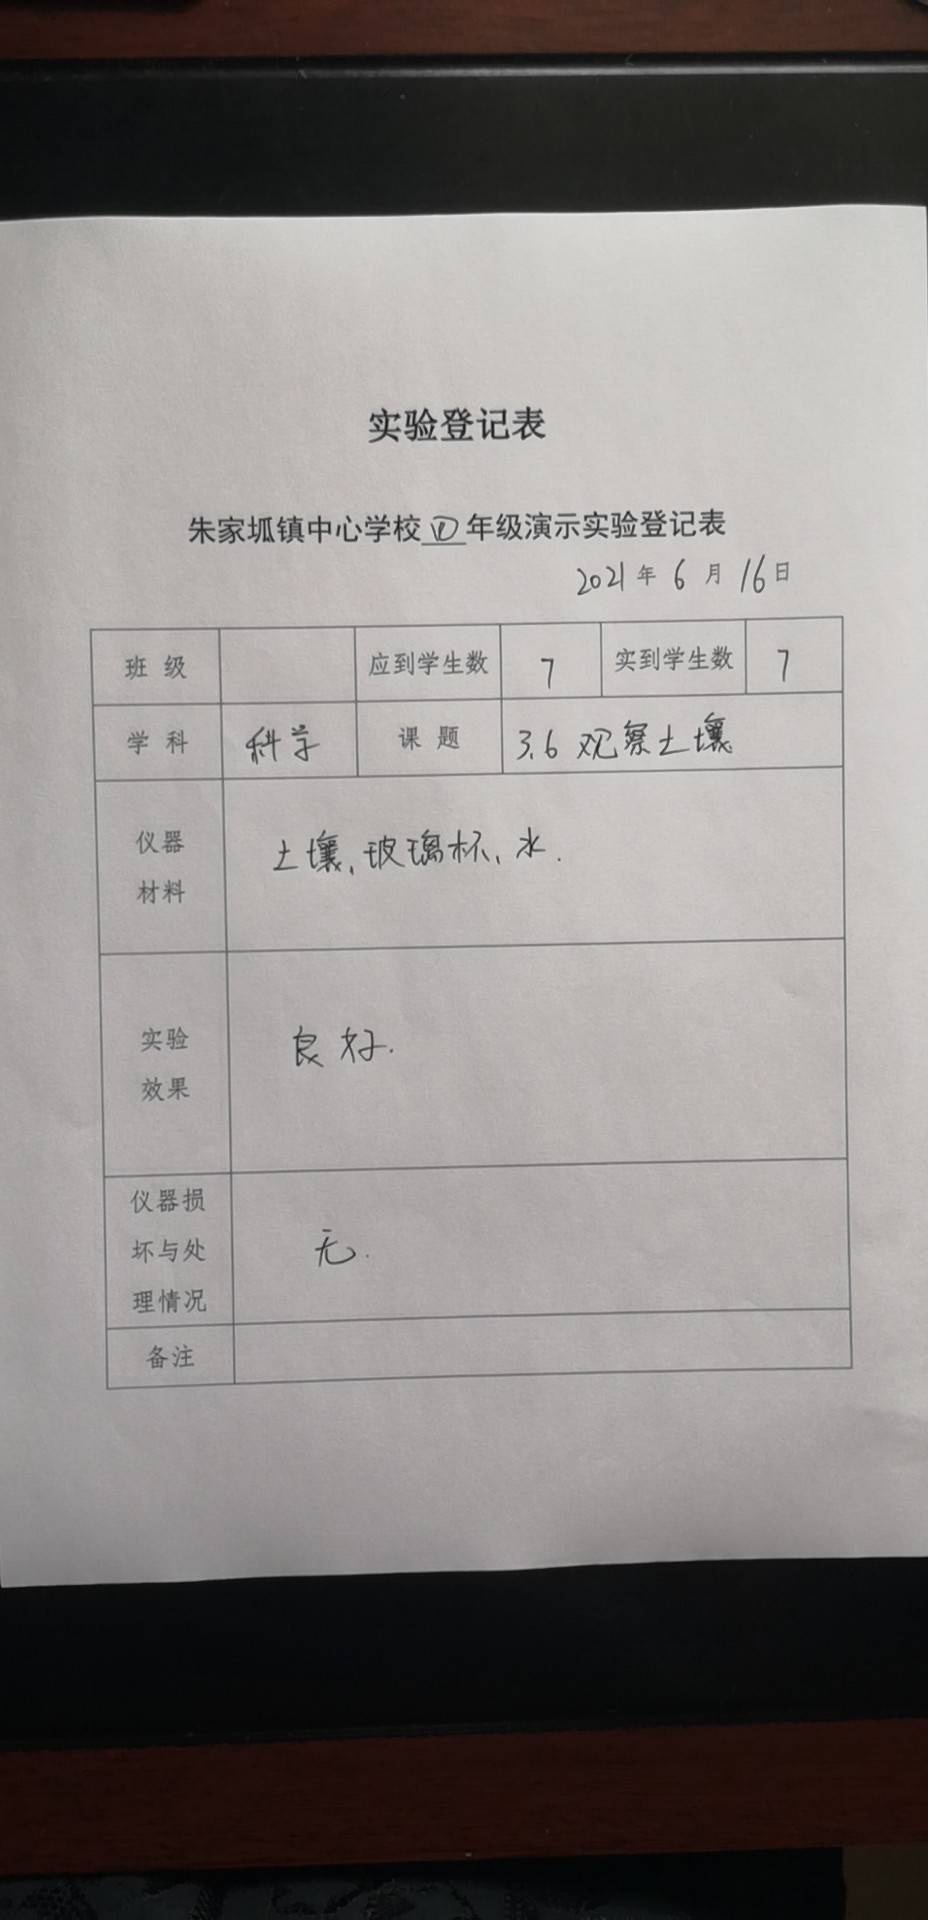 实验登记表
朱家坬镇中心学校四年级演示实验登记表
2021年6月16日
班级 应到学生数 7 实到学生数 7
学科 科学 课题 3.6 观察土壤
仪器
材料
土壤、玻璃杯、水.
实验
效果
良好.
仪器损
坏与处
理情况
无.
备注